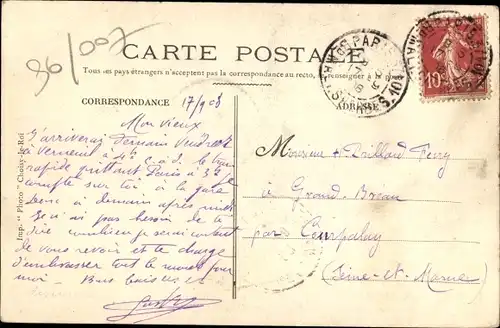 96/007
CARTE POSTALE
Tous les pays étrangers n'acceptent pas la correspondance au recto, renseigner à la
CORRESPONDANCE
ADRESSE
17/9 08
Mon vieux
J'arriverai demain Vendredi
à Verneuil à 4h c. à d. le train
rapide quittant Paris à 3h
compte sur toi à la gare
donc à demain après midi
Je n'ai pas besoin de te
dire combien je serai content
de vous revoir et te charge
d'embrasser tout le monde pour
moi - Bons baisers
Monsieur Paillard Ferry
à Grand-Bréau
par Courpalay
(Seine-et-Marne)
Imp. "Phoco" Choisy-le-Roi
PARIS
10